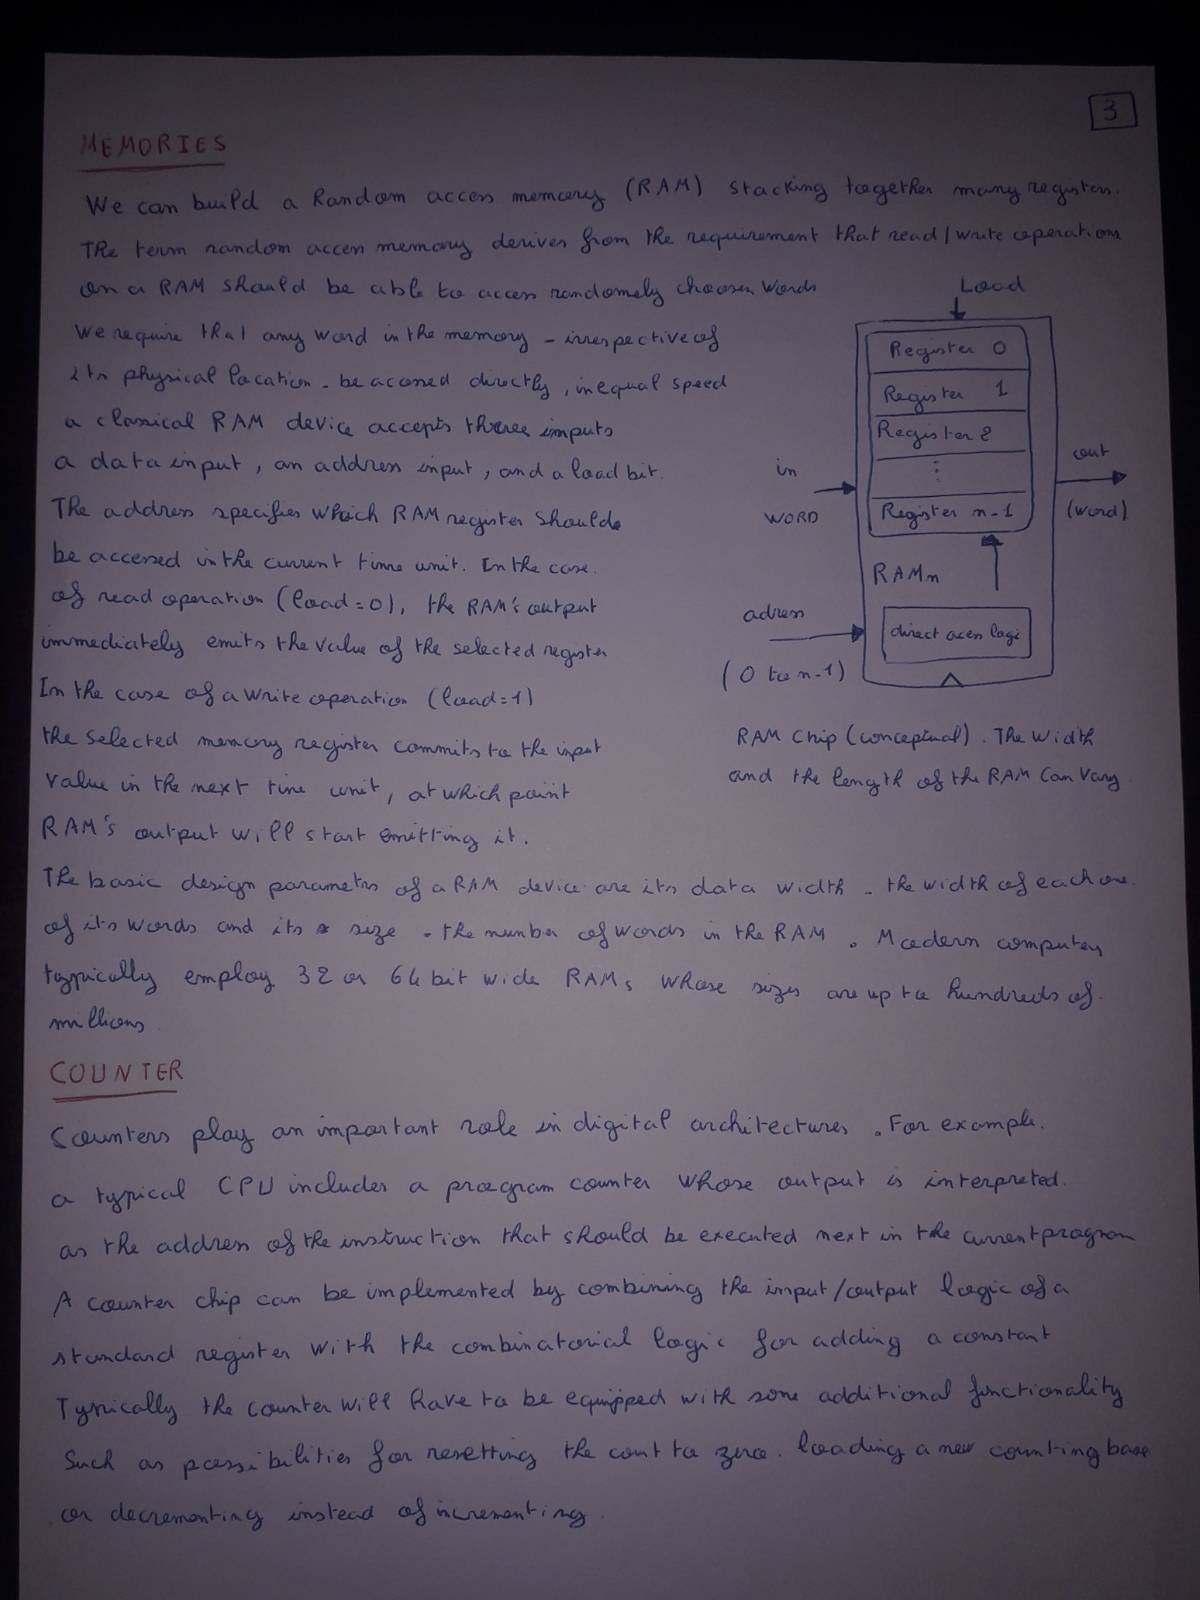 3
MEMORIES
We can build a Random access memory (RAM) stacking together many registers.
The term random access memory derives from the requirement that read/write operations
on a RAM should be able to access randomely choosen words
We require that any word in the memory - irrespective of
its physical location - be acessed directly, in equal speed
a classical RAM device accepts three imputs
a data input, an address input, and a load bit.
The address specifies which RAM register should
be accessed in the current time unit. In the case
of read operation (load=0), the RAM's output
immediately emits the value of the selected register
In the case of a write operation (load=1)
the selected memory register commits to the input
value in the next time unit, at which point
RAM's output will start emitting it.
Load
Register 0
Register 1
Register 2
⋮
Register n-1
in
WORD
out
(word)
RAMn
adress
(0 to n-1)
direct acess logic
RAM Chip (conceptual). The width
and the length of the RAM can vary
The basic design parametrs of a RAM device are its data width - the width of each one
of its words and its size - the number of words in the RAM. Modern computers
typically employ 32 or 64 bit wide RAMs whose sizes are up to hundreds of
millions
COUNTER
Counters play an important role in digital architectures. For example.
a typical CPU includes a program counter whose output is interpreted.
as the address of the instruction that should be executed next in the current program
A counter chip can be implemented by combining the input/output logic of a
standard register with the combinatorial logic for adding a constant
Typically the counter will have to be equipped with some additional functionality
Such as possibilities for resetting the count to zero. loading a new counting base
or decrementing instead of incrementing.